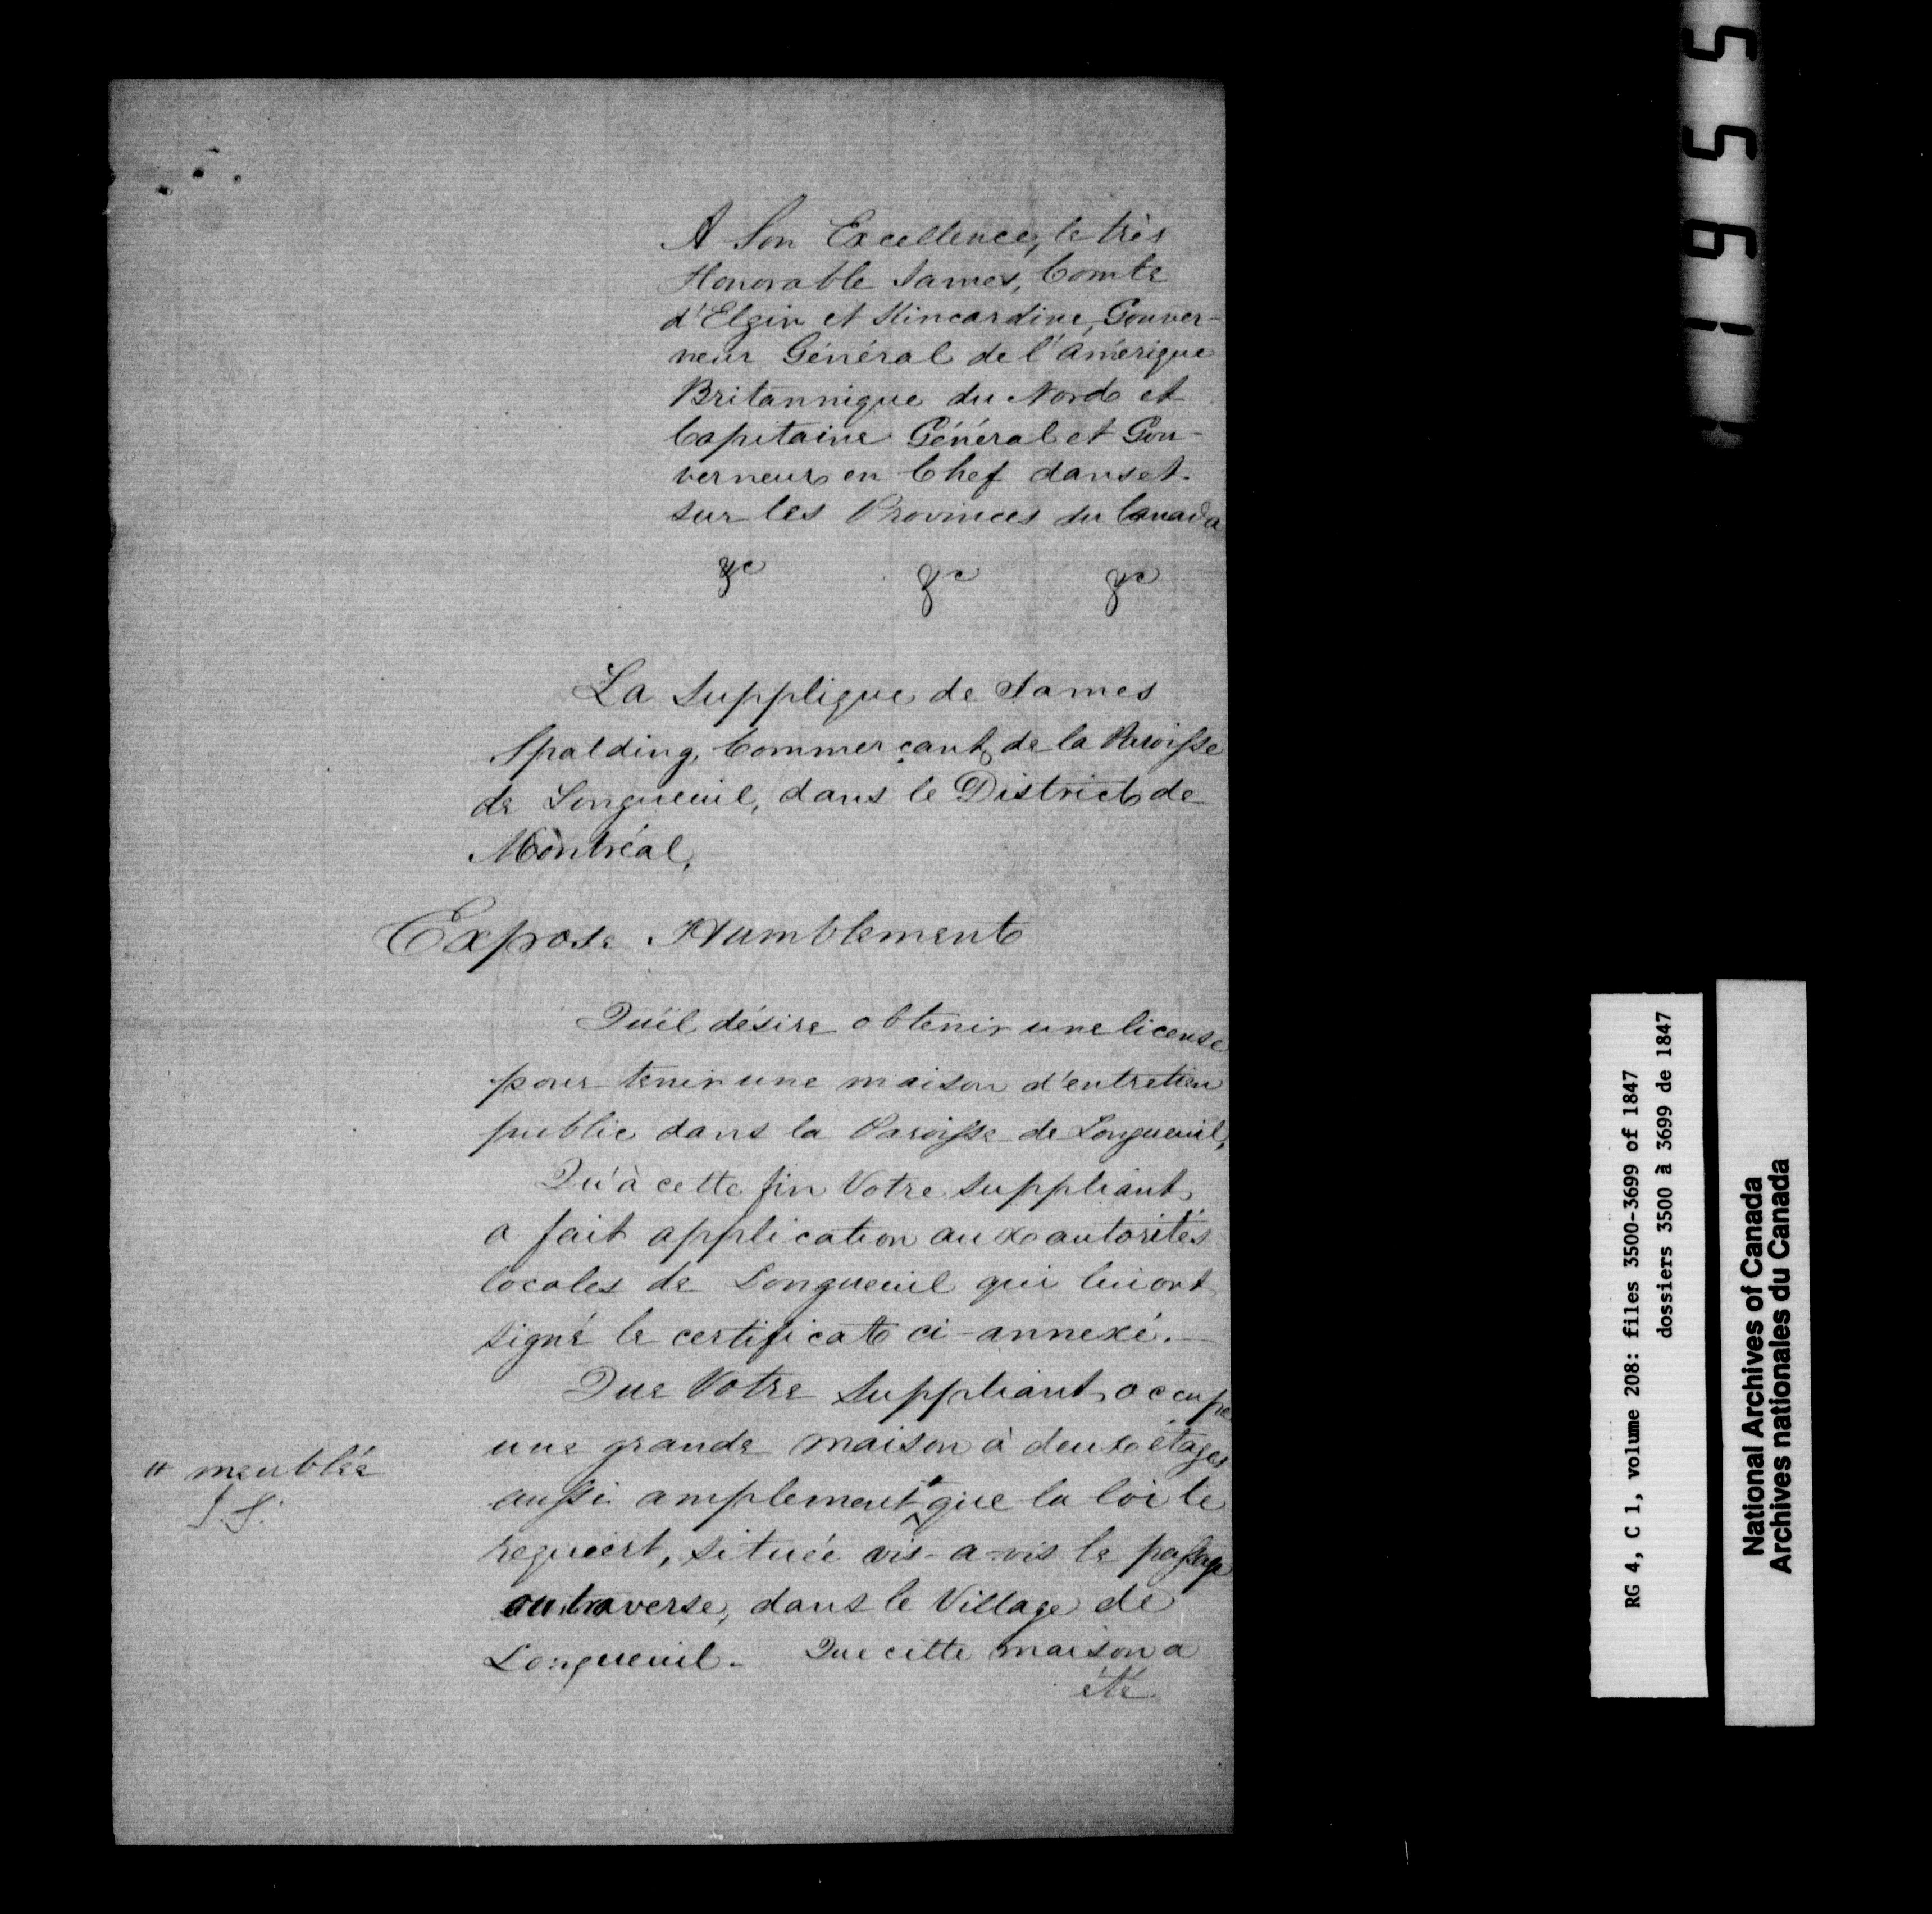 A Son Excellence, le très
Honorable James, Comte
d'Elgin et Kincardine, Gouver-
neur Général de l'Amérique
Britannique du Nord et
Capitaine Général et Gou-
verneur en Chef dans et
sur les Provinces du Canada
&c &c &c
La Supplique de James
Spalding, Commerçant, de la Paroisse
de Longueuil, dans le District de
Montréal,
Expose Humblement
Qu'il désire obtenir une license
pour tenir une maison d'entretien
public dans la Paroisse de Longueuil,
Qu'à cette fin Votre Suppliant
a fait application aux autorités
locales de Longueuil qui lui ont
signé le certificat ci-annexé.—
Que Votre Suppliant occupe
une grande maison à deux étages
aussi amplement # que la loi le
# meublée
J.S.
requiert, située vis-a-vis le passage
ou traverse, dans le Village de
Longueuil. — Que cette maison a
été
16955
RG 4, C 1, volume 208: files 3500-3699 of 1847
dossiers 3500 à 3699 de 1847
National Archives of Canada
Archives nationales du Canada